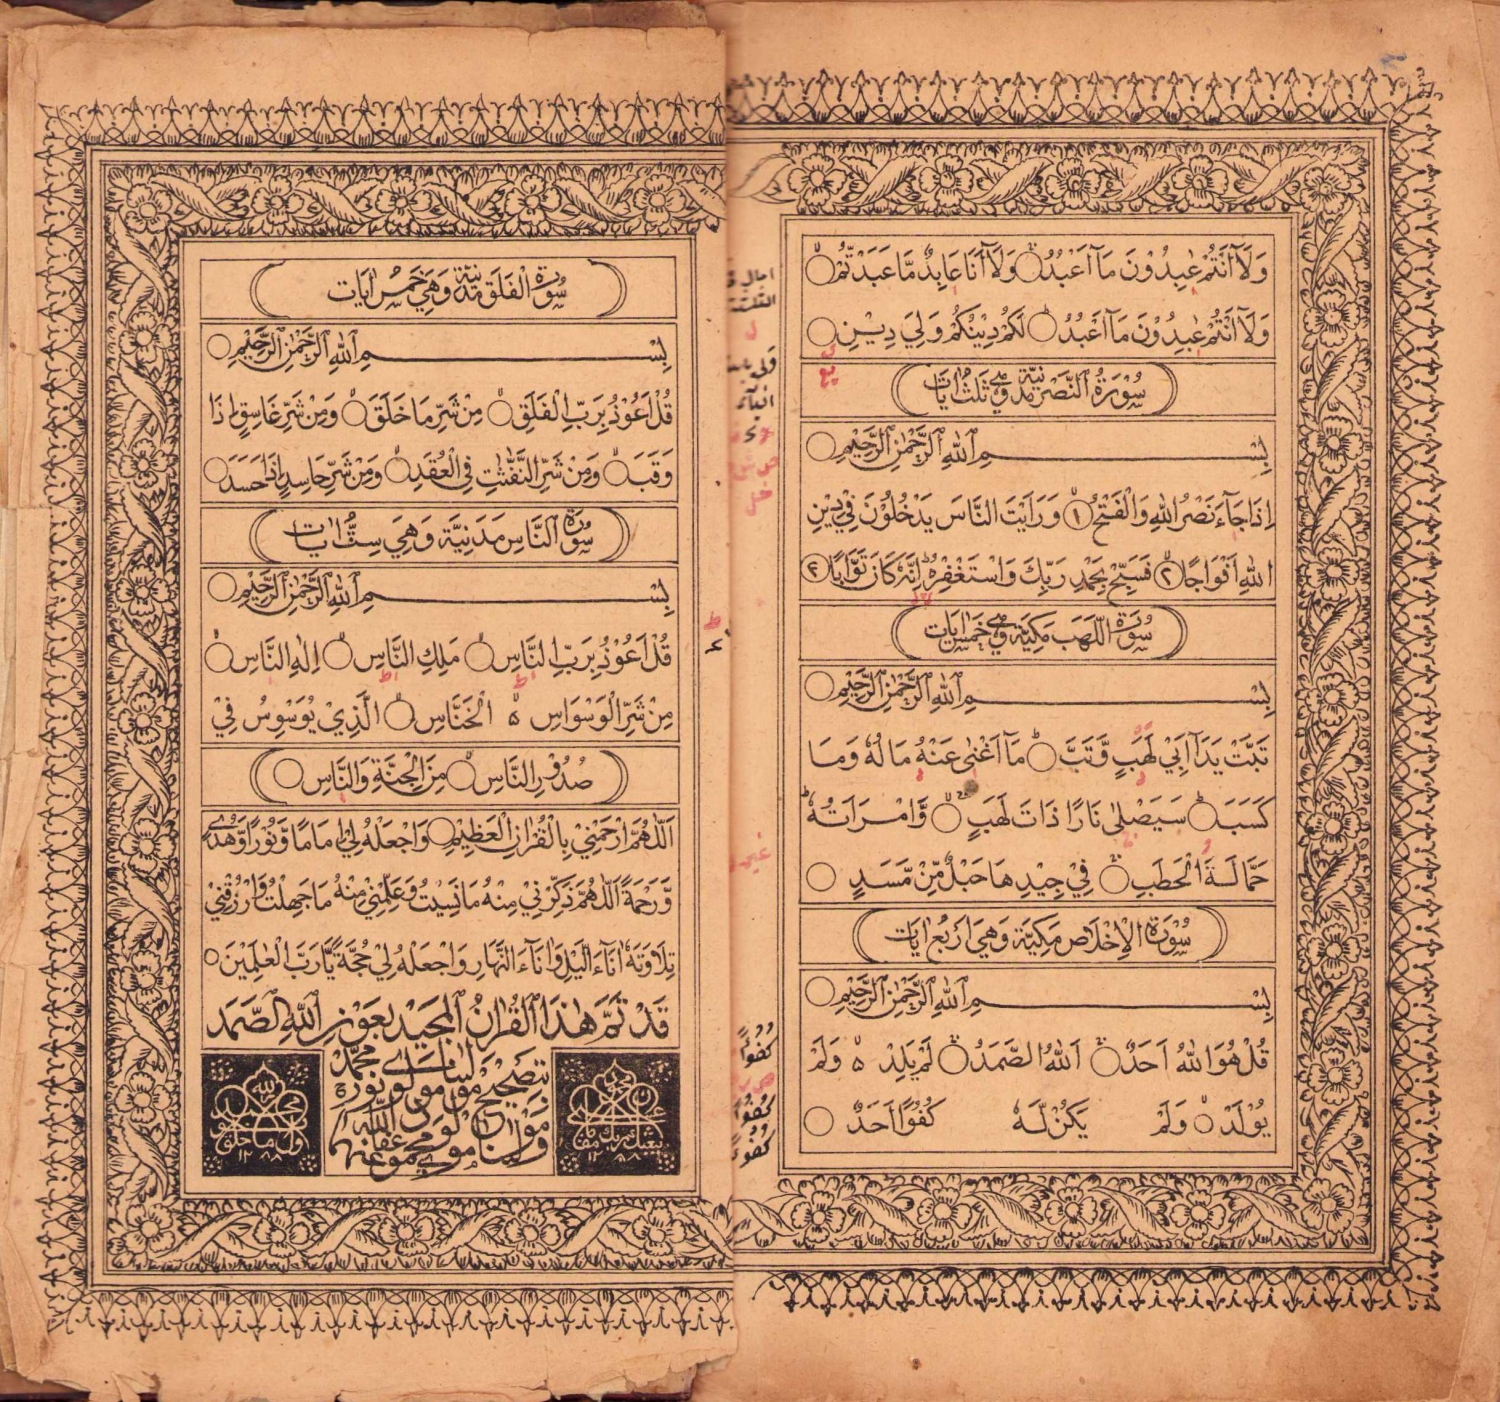 وَلَآ اَنْتُمْ عٰبِدُوْنَ مَآ اَعْبُدُ ۝ وَلَآ اَنَا عَابِدٌ مَّا عَبَدْتُّمْ ۝
وَلَآ اَنْتُمْ عٰبِدُوْنَ مَآ اَعْبُدُ ۝ لَكُمْ دِيْنُكُمْ وَلِيَ دِيْنِ ۝
سُوْرَةُ النَّصْرِ مَدَنِيَّةٌ وَهِيَ ثَلٰثُ اٰيَات
بِسْمِ اللّٰهِ الرَّحْمٰنِ الرَّحِيْمِ ۝
اِذَا جَآءَ نَصْرُ اللّٰهِ وَالْفَتْحُ ۝١ وَرَاَيْتَ النَّاسَ يَدْخُلُوْنَ فِيْ دِيْنِ
اللّٰهِ اَفْوَاجًا ۝٢ فَسَبِّحْ بِحَمْدِ رَبِّكَ وَاسْتَغْفِرْهُ اِنَّهٗ كَانَ تَوَّابًا ۝
سُوْرَةُ اللَّهَبِ مَكِيَّةٌ وَهِيَ خَمْسُ اٰيَات
بِسْمِ اللّٰهِ الرَّحْمٰنِ الرَّحِيْمِ ۝
تَبَّتْ يَدَآ اَبِيْ لَهَبٍ وَّتَبَّ ۝ مَآ اَغْنٰى عَنْهُ مَالُهٗ وَمَا
كَسَبَ ۝ سَيَصْلٰى نَارًا ذَاتَ لَهَبٍ ۝ وَّامْرَاَتُهٗ
حَمَّالَةَ الْحَطَبِ ۝ فِيْ جِيْدِهَا حَبْلٌ مِّنْ مَّسَدٍ ۝
سُوْرَةُ الْاِخْلَاصِ مَكِيَّةٌ وَهِيَ اَرْبَعُ اٰيَات
بِسْمِ اللّٰهِ الرَّحْمٰنِ الرَّحِيْمِ ۝
قُلْ هُوَ اللّٰهُ اَحَدٌ ۝ اَللّٰهُ الصَّمَدُ ۝ لَمْ يَلِدْ ۵ وَلَمْ
يُوْلَدْ ۵ وَلَمْ يَكُنْ لَّهٗ كُفُوًا اَحَدٌ ۝
كفوًا
كفؤا
سُوْرَةُ الْفَلَقِ مَدَنِيَّةٌ وَهِيَ خَمْسُ اٰيَات
بِسْمِ اللّٰهِ الرَّحْمٰنِ الرَّحِيْمِ ۝
قُلْ اَعُوْذُ بِرَبِّ الْفَلَقِ ۝ مِنْ شَرِّ مَا خَلَقَ ۝ وَمِنْ شَرِّ غَاسِقٍ اِذَا
وَقَبَ ۝ وَمِنْ شَرِّ النَّفّٰثٰتِ فِى الْعُقَدِ ۝ وَمِنْ شَرِّ حَاسِدٍ اِذَا حَسَدَ ۝
سُوْرَةُ النَّاسِ مَدَنِيَّةٌ وَهِيَ سِتُّ اٰيَات
بِسْمِ اللّٰهِ الرَّحْمٰنِ الرَّحِيْمِ ۝
قُلْ اَعُوْذُ بِرَبِّ النَّاسِ ۝ مَلِكِ النَّاسِ ۝ اِلٰهِ النَّاسِ ۝
مِنْ شَرِّ الْوَسْوَاسِ ۵ الْخَنَّاسِ ۝ الَّذِيْ يُوَسْوِسُ فِيْ
صُدُوْرِ النَّاسِ ۝ مِنَ الْجِنَّةِ وَالنَّاسِ ۝
اَللّٰهُمَّ ارْحَمْنِيْ بِالْقُرْاٰنِ الْعَظِيْمِ ۝ وَاجْعَلْهُ لِيْ اِمَامًا وَّنُوْرًا وَّهُدًى
وَّرَحْمَةً اَللّٰهُمَّ ذَكِّرْنِيْ مِنْهُ مَا نَسِيْتُ وَعَلِّمْنِيْ مِنْهُ مَا جَهِلْتُ وَارْزُقْنِيْ
تِلَاوَتَهٗ اٰنَآءَ الَّيْلِ وَاٰنَآءَ النَّهَارِ وَاجْعَلْهُ لِيْ حُجَّةً يَّا رَبَّ الْعٰلَمِيْنَ ۝
قَدْ تَمَّ هٰذَا الْقُرْاٰنُ الْمَجِيْدُ بعون اللّٰه الصَّمَد
بتصحيح
محمد